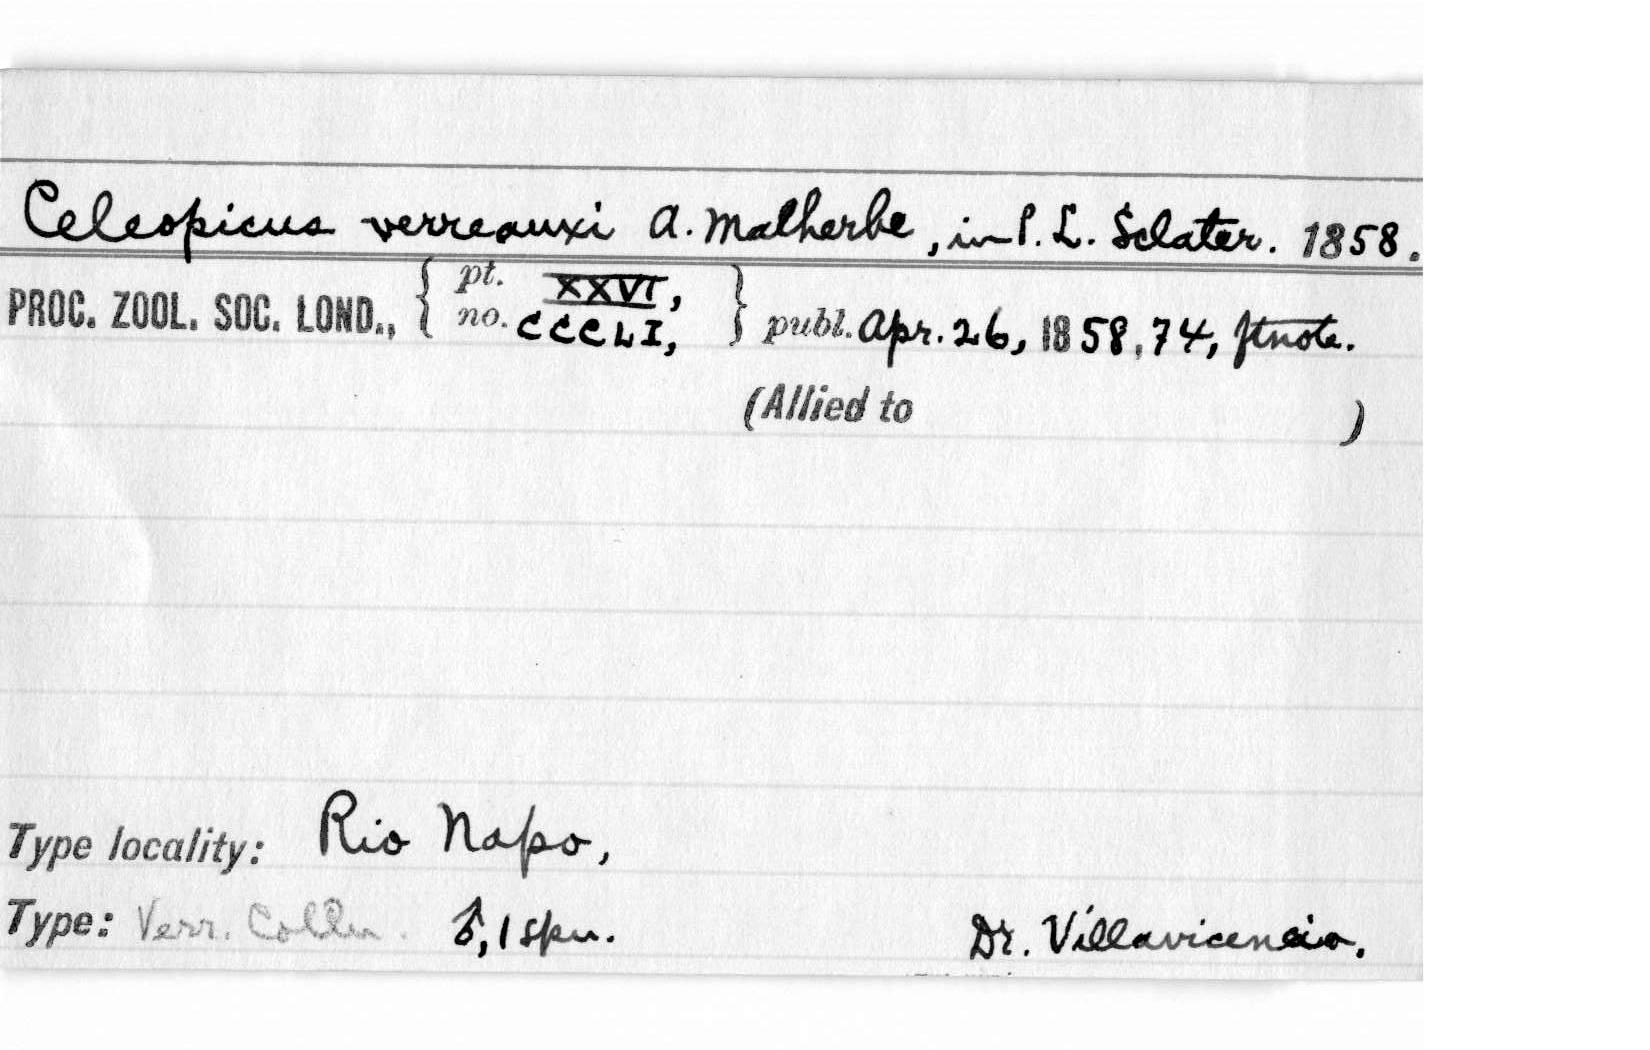 Celeopicus verreauxi A. Malherbe, in P. L. Sclater. 1858.
PROC. ZOOL. SOC. LOND., { pt. XXVI, no. CCCLI, } publ. Apr. 26, 1858, 74, ftnote.
(Allied to )
Type locality: Rio Napo,
Type: Verr. Colln. ♂, 1 spn. Dr. Villavicencio.